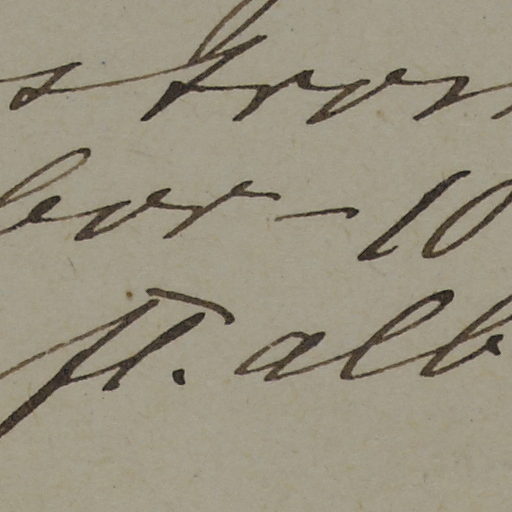 s from
bor - 10
fl. alb